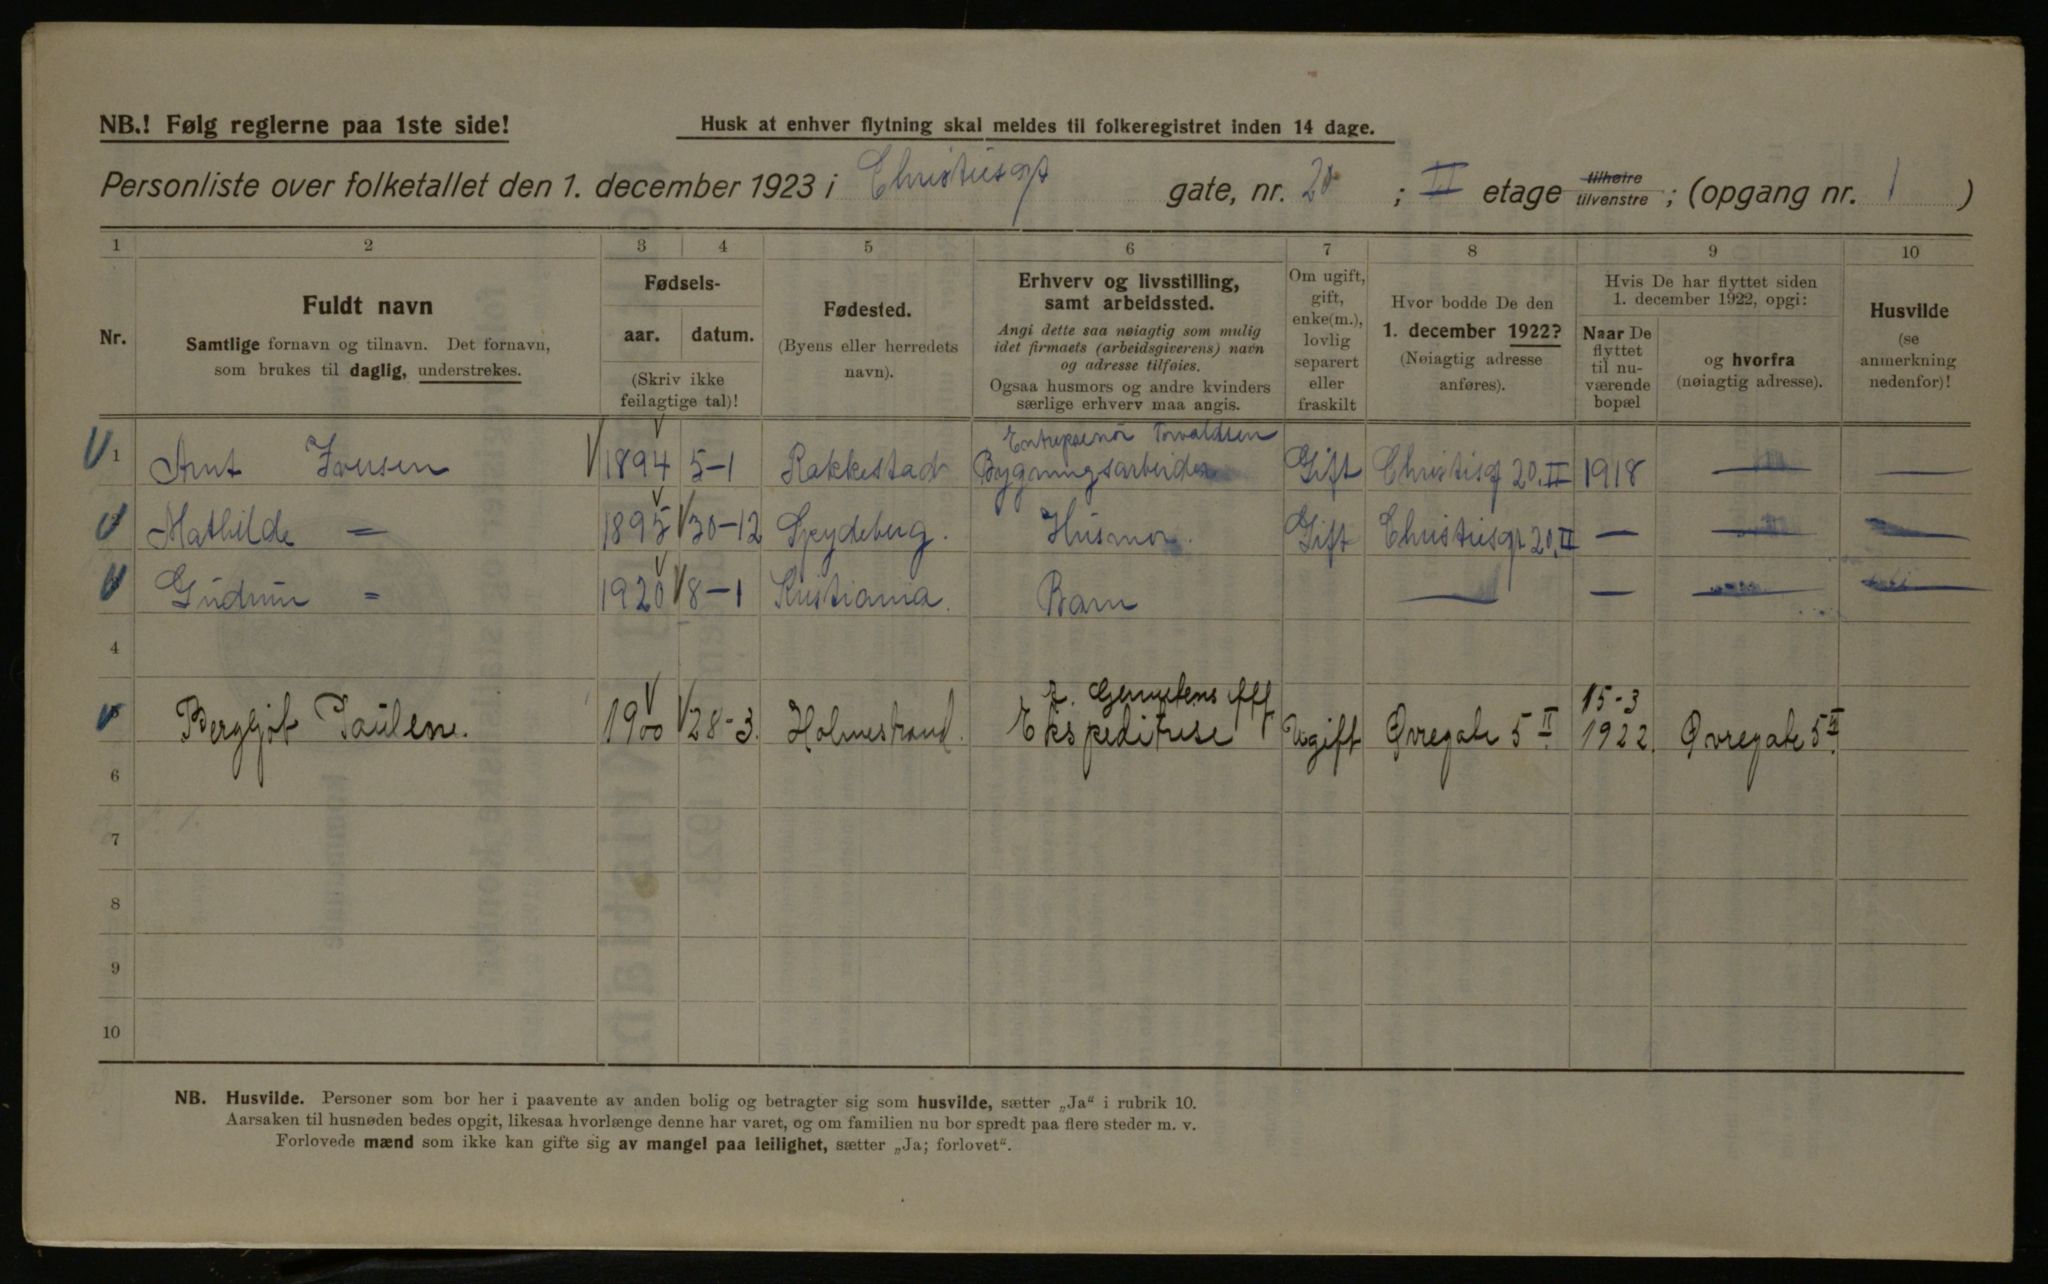 NB.! Følg reglerne paa 1ste side!
Husk at enhver flytning skal meldes til folkeregistret inden 14 dage.
Personliste over folketallet den 1. december 1923 i Christiesgt gate, nr. 20 ; II etage tilhøire tilvenstre ; (opgang nr. 1 )
1 2 3 4 5 6 7 8 9 10
Nr.
Fuldt navn
Samtlige fornavn og tilnavn. Det fornavn,
som brukes til daglig, understrekes.
Fødsels-
aar. datum.
(Skriv ikke
feilagtige tal)!
Fødested.
(Byens eller herredets
navn).
Erhverv og livsstilling,
samt arbeidssted.
Angi dette saa nøiagtig som mulig
idet firmaets (arbeidsgiverens) navn
og adresse tilføies.
Ogsaa husmors og andre kvinders
særlige erhverv maa angis.
Om ugift,
gift,
enke(m.),
lovlig
separert
eller
fraskilt
Hvor bodde De den
1. december 1922?
(Nøiagtig adresse
anføres).
Hvis De har flyttet siden
1. december 1922, opgi:
Naar De
flyttet
til nu-
værende
bopæl
og hvorfra
(nøiagtig adresse).
Husvilde
(se
anmerkning
nedenfor)!
Entreprenør Torvaldsen
1 Arnt 1894 5-1 Rakkestad Bygningsarbeider Gift Christisgt 20.II 1918 — —
Mathilde = 1895 30-12 Spydeberg. Husmor. Gift Christiesgt 20.II — — —
Gudrun = 1920 8-1 Kristiania. Barn — — — —
4
15-3
5 Bergljot Paulsen. 1900 28-3. Holmestrand. Ekspeditrise Ugift Øvregate 5 II 1922. Øvregate 5 II
6
7
8
9
10
NB. Husvilde. Personer som bor her i paavente av anden bolig og betragter sig som husvilde, sætter „Ja“ i rubrik 10.
Aarsaken til husnøden bedes opgit, likesaa hvorlænge denne har varet, og om familien nu bor spredt paa flere steder m. v.
Forlovede mænd som ikke kan gifte sig av mangel paa leilighet, sætter „Ja; forlovet“.